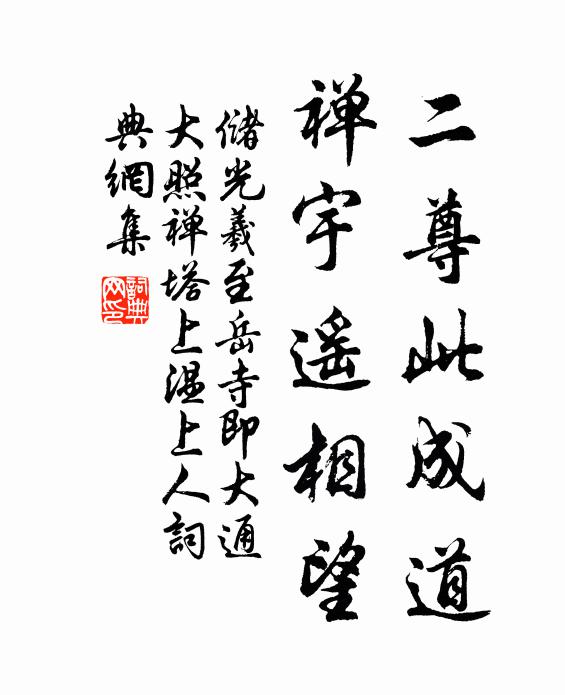 二尊此成道
禅宇遥相望
儲光羲至岳寺即大通
大照禅塔上温上人詞
典網集
詞典
网印